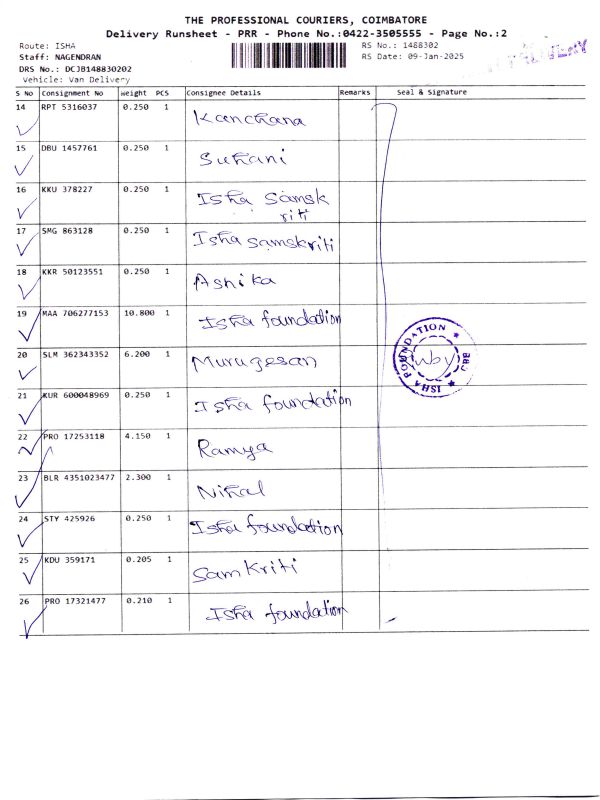 THE PROFESSIONAL COURIERS, COIMBATORE
Delivery Runsheet - PRR - Phone No.:0422-3505555 - Page No.:2
Route: ISHA
RS No.: 1488302
Staff: NAGENDRAN
RS Date: 09-Jan-2025
DRS No.: DCJB148830202
Vehicle: Van Delivery
S No Consignment No Weight PCS Consignee Details Remarks Seal & Signature
14 RPT 5316037 0.250 1 Kanchana
15 DBU 1457761 0.250 1 Suhani
16 KKU 378227 0.250 1 Isha Samsk
riti
17 SMG 863128 0.250 1 Isha samskriti
18 KKR 50123551 0.250 1 Ashika
19 MAA 706277153 10.800 1 Isha foundation
20 SLM 362343352 6.200 1 Murugesan
21 KUR 600048969 0.250 1 Isha foundation
22 PRO 17253118 4.150 1 Ramya
23 BLR 4351023477 2.300 1 Nihal
24 STY 425926 0.250 1 Isha foundation
25 KDU 359171 0.205 1 Samkriti
26 PRO 17321477 0.210 1 Isha foundation
ISHA FOUNDATION
CBE